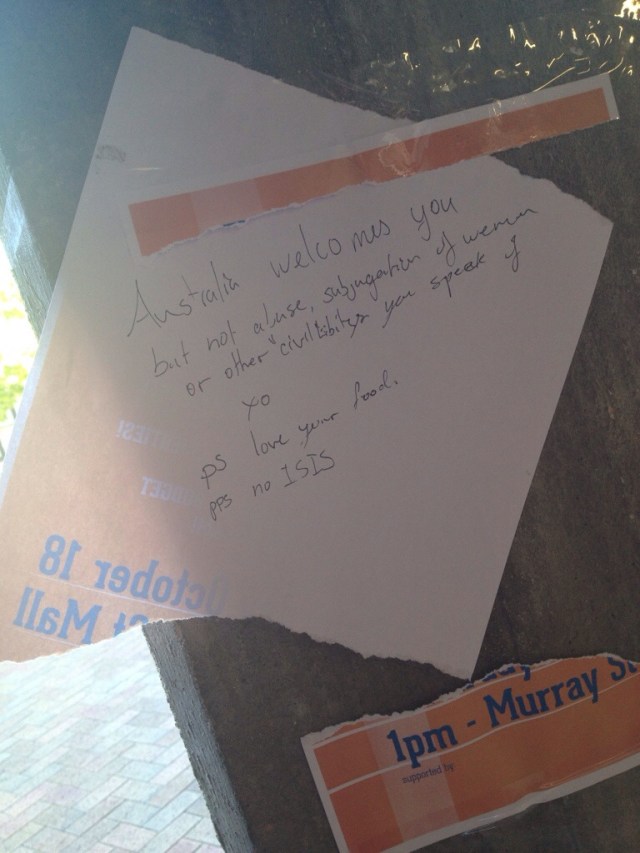 Australia welcomes you
but not abuse, subjugation of women
or other civil libities you speak of
xo
ps love your food.
pps no ISIS
TIES!
DGET
October 18
St Mall
1pm - Murray S
supported by